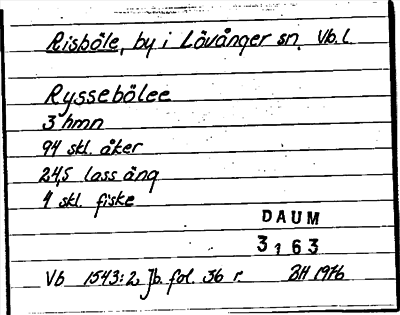 Risböle, by i Lövånger sn. Vb. l.
Ryssebölee
3 hmn
94 skl. åker
24,5 lass äng
4 skl. fiske
DAUM
3163
Vb 1543:2 Jb. fol. 36 r. BH 1976